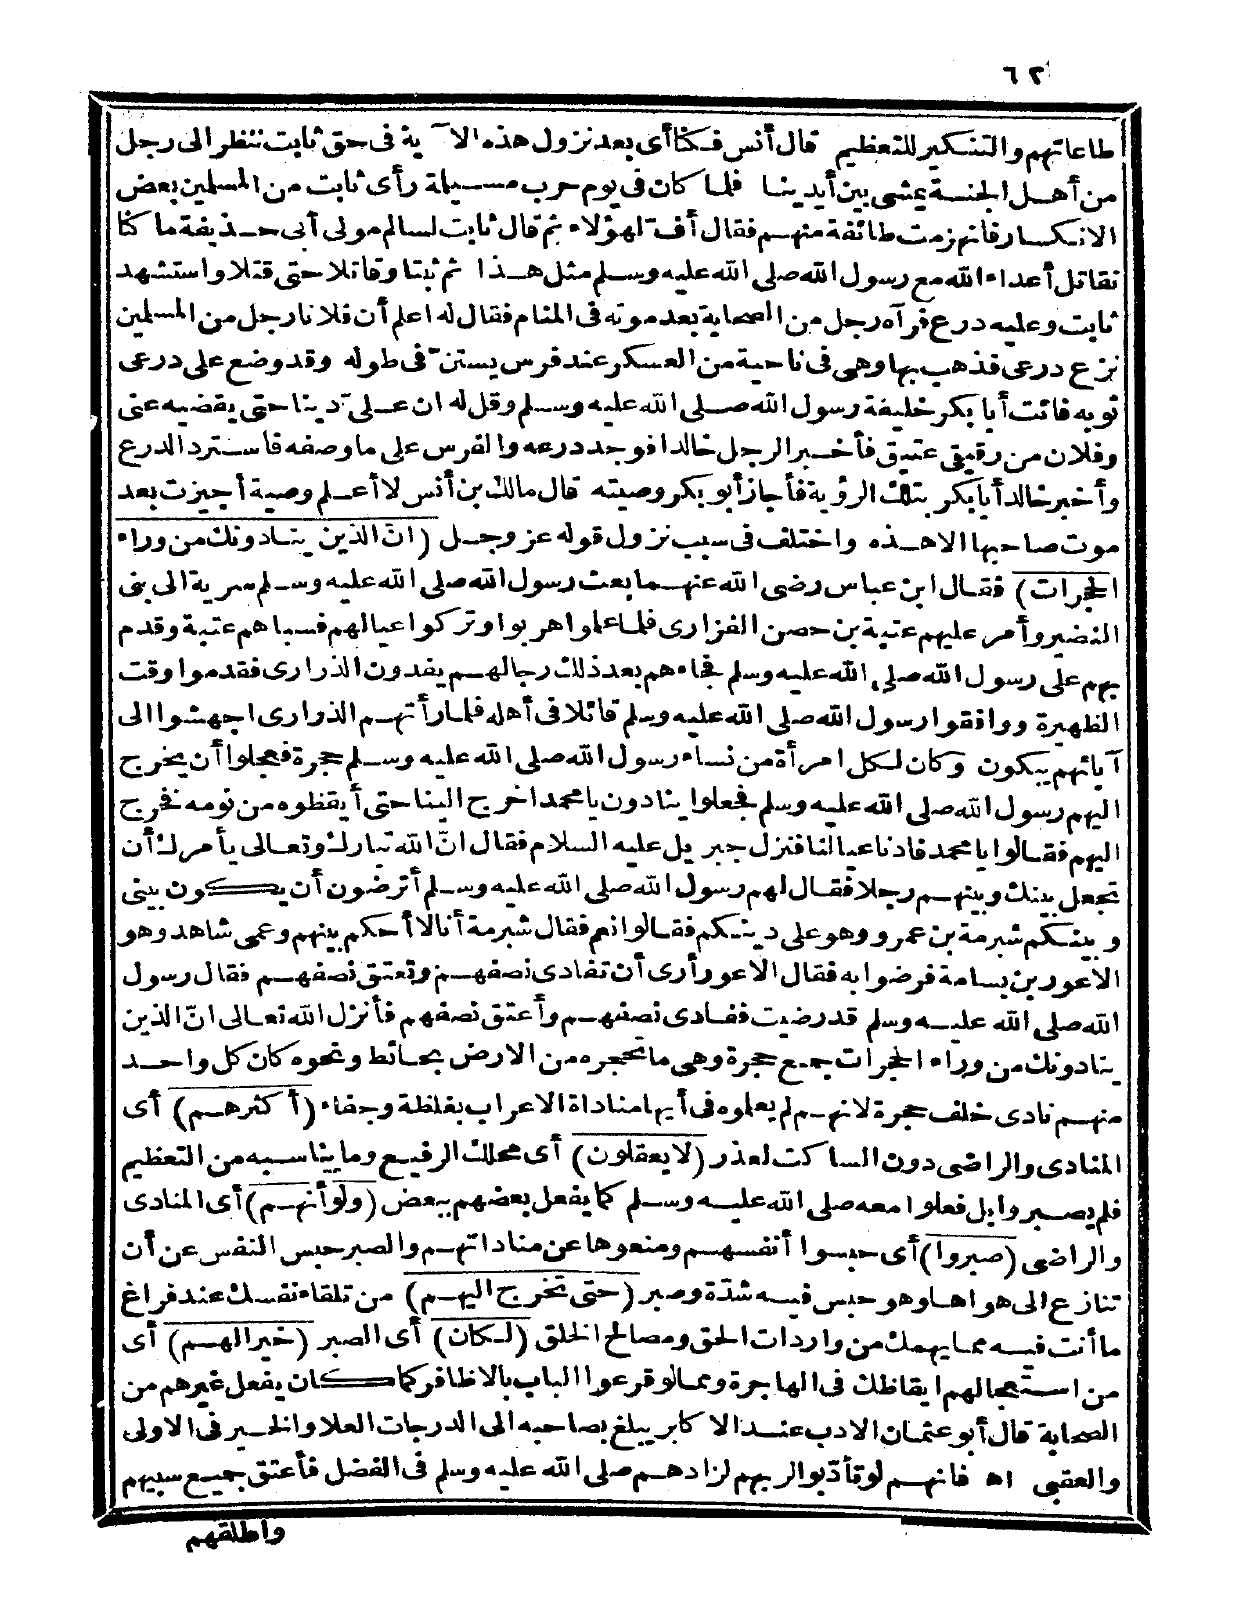 ٦٢
طاعاتهم والتنكير للتعظيم قال أنس فكنا أى بعد نزول هذه الآية فى حق ثابت ننظر الى رجل
من أهل الجنة يمشى بين أيدينا فلما كان فى يوم حرب مسيلة رأى ثابت من المسلمين بعض
الانكسار فانهزمت طائفة منهم فقال أفّ لهؤلاء ثم قال ثابت لسالم مولى أبى حذيفة ما كنا
نقاتل أعداء الله مع رسول الله صلى الله عليه وسلم مثل هذا ثم ثبتا وقاتلا حتى قتلا واستشهد
ثابت وعليه درع فرآه رجل من الصحابة بعد موته فى المنام فقال له اعلم أن فلانا رجل من المسلمين
نزع درعى فذهب بها وهى فى ناحية من العسكر عند فرس يستن فى طوله وقد وضع على درعى
ثوبه فائت أبا بكر خليفة رسول الله صلى الله عليه وسلم وقل له ان علىّ دينا حتى يقضيه عنى
وفلان من رقيقى عتيق فأخبر الرجل خالدا فوجد درعه والفرس على ما وصفه فاسترد الدرع
وأخبر خالد أبا بكر بتلك الرؤية فأجاز أبو بكر وصيته قال مالك بن أنس لا أعلم وصية أجيزت بعد
موت صاحبها الا هذه واختلف فى سبب نزول قوله عز وجل (انّ الذين ينادونك من وراء
الحجرات) فقال ابن عباس رضى الله عنهما بعث رسول الله صلى الله عليه وسلم سرية الى بنى
النضير وأمر عليهم عتبة بن حصن الفزارى فلما علموا هربوا وتركوا عيالهم فسباهم عتبة وقدم
بهم على رسول الله صلى الله عليه وسلم فجاءهم بعد ذلك رجالهم يفدون الذرارى فقدموا وقت
الظهيرة ووافقوا رسول الله صلى الله عليه وسلم قائلا فى أهله فلما رأتهم الذرارى اجهشوا الى
آبائهم يبكون وكان لكل امرأة من نساء رسول الله صلى الله عليه وسلم حجرة فعجلوا أن يخرج
اليهم رسول الله صلى الله عليه وسلم فجعلوا ينادون يا محمد اخرج الينا حتى أيقظوه من نومه فخرج
اليهم فقالوا يا محمد فادنا عيالنا فنزل جبريل عليه السلام فقال انّ الله تبارك وتعالى يأمرك أن
تجعل بينك وبينهم رجلا فقال لهم رسول الله صلى الله عليه وسلم أترضون أن يكون بينى
وبينكم شبرمة بن عمرو وهو على دينكم فقالوا نعم فقال شبرمة أنا لا أحكم بينهم وعمى شاهد وهو
الاعور بن بسامة فرضوا به فقال الاعور أرى أن تفادى نصفهم وتعتق نصفهم فقال رسول
الله صلى الله عليه وسلم قد رضيت ففادى نصفهم وأعتق نصفهم فأنزل الله تعالى انّ الذين
ينادونك من وراء الحجرات جمع حجرة وهى ما تحجره من الارض بحائط ونحوه كان كل واحد
منهم نادى خلف حجرة لانهم لم يعلموه فى أيها مناداة الاعراب بغلظة وجفاء (أكثرهم) أى
المنادى والراضى دون الساكت لعذر (لا يعقلون) أى محلك الرفيع وما يناسبه من التعظيم
فلم يصبروا بل فعلوا معه صلى الله عليه وسلم كما يفعل بعضهم ببعض (ولو أنهم) أى المنادى
والراضى (صبروا) أى حبسوا أنفسهم ومنعوها عن مناداتهم والصبر حبس النفس عن أن
تنازع الى هواها وهو حبس فيه شدّة وصبر (حتى تخرج اليهم) من تلقاء نفسك عند فراغ
ما أنت فيه مما يهمك من واردات الحق ومصالح الخلق (لكان) أى الصبر (خيرا لهم) أى
من استعجالهم ايقاظك فى الهاجرة ومما لو قرعوا الباب بالاظافر كما كان يفعل غيرهم من
الصحابة قال أبو عثمان الادب عند الاكابر يبلغ بصاحبه الى الدرجات العلا والخير فى الاولى
والعقبى اه فانهم لو تأدّبوا لربهم لزادهم صلى الله عليه وسلم فى الفضل فأعتق جميع سبيهم
واطلقهم